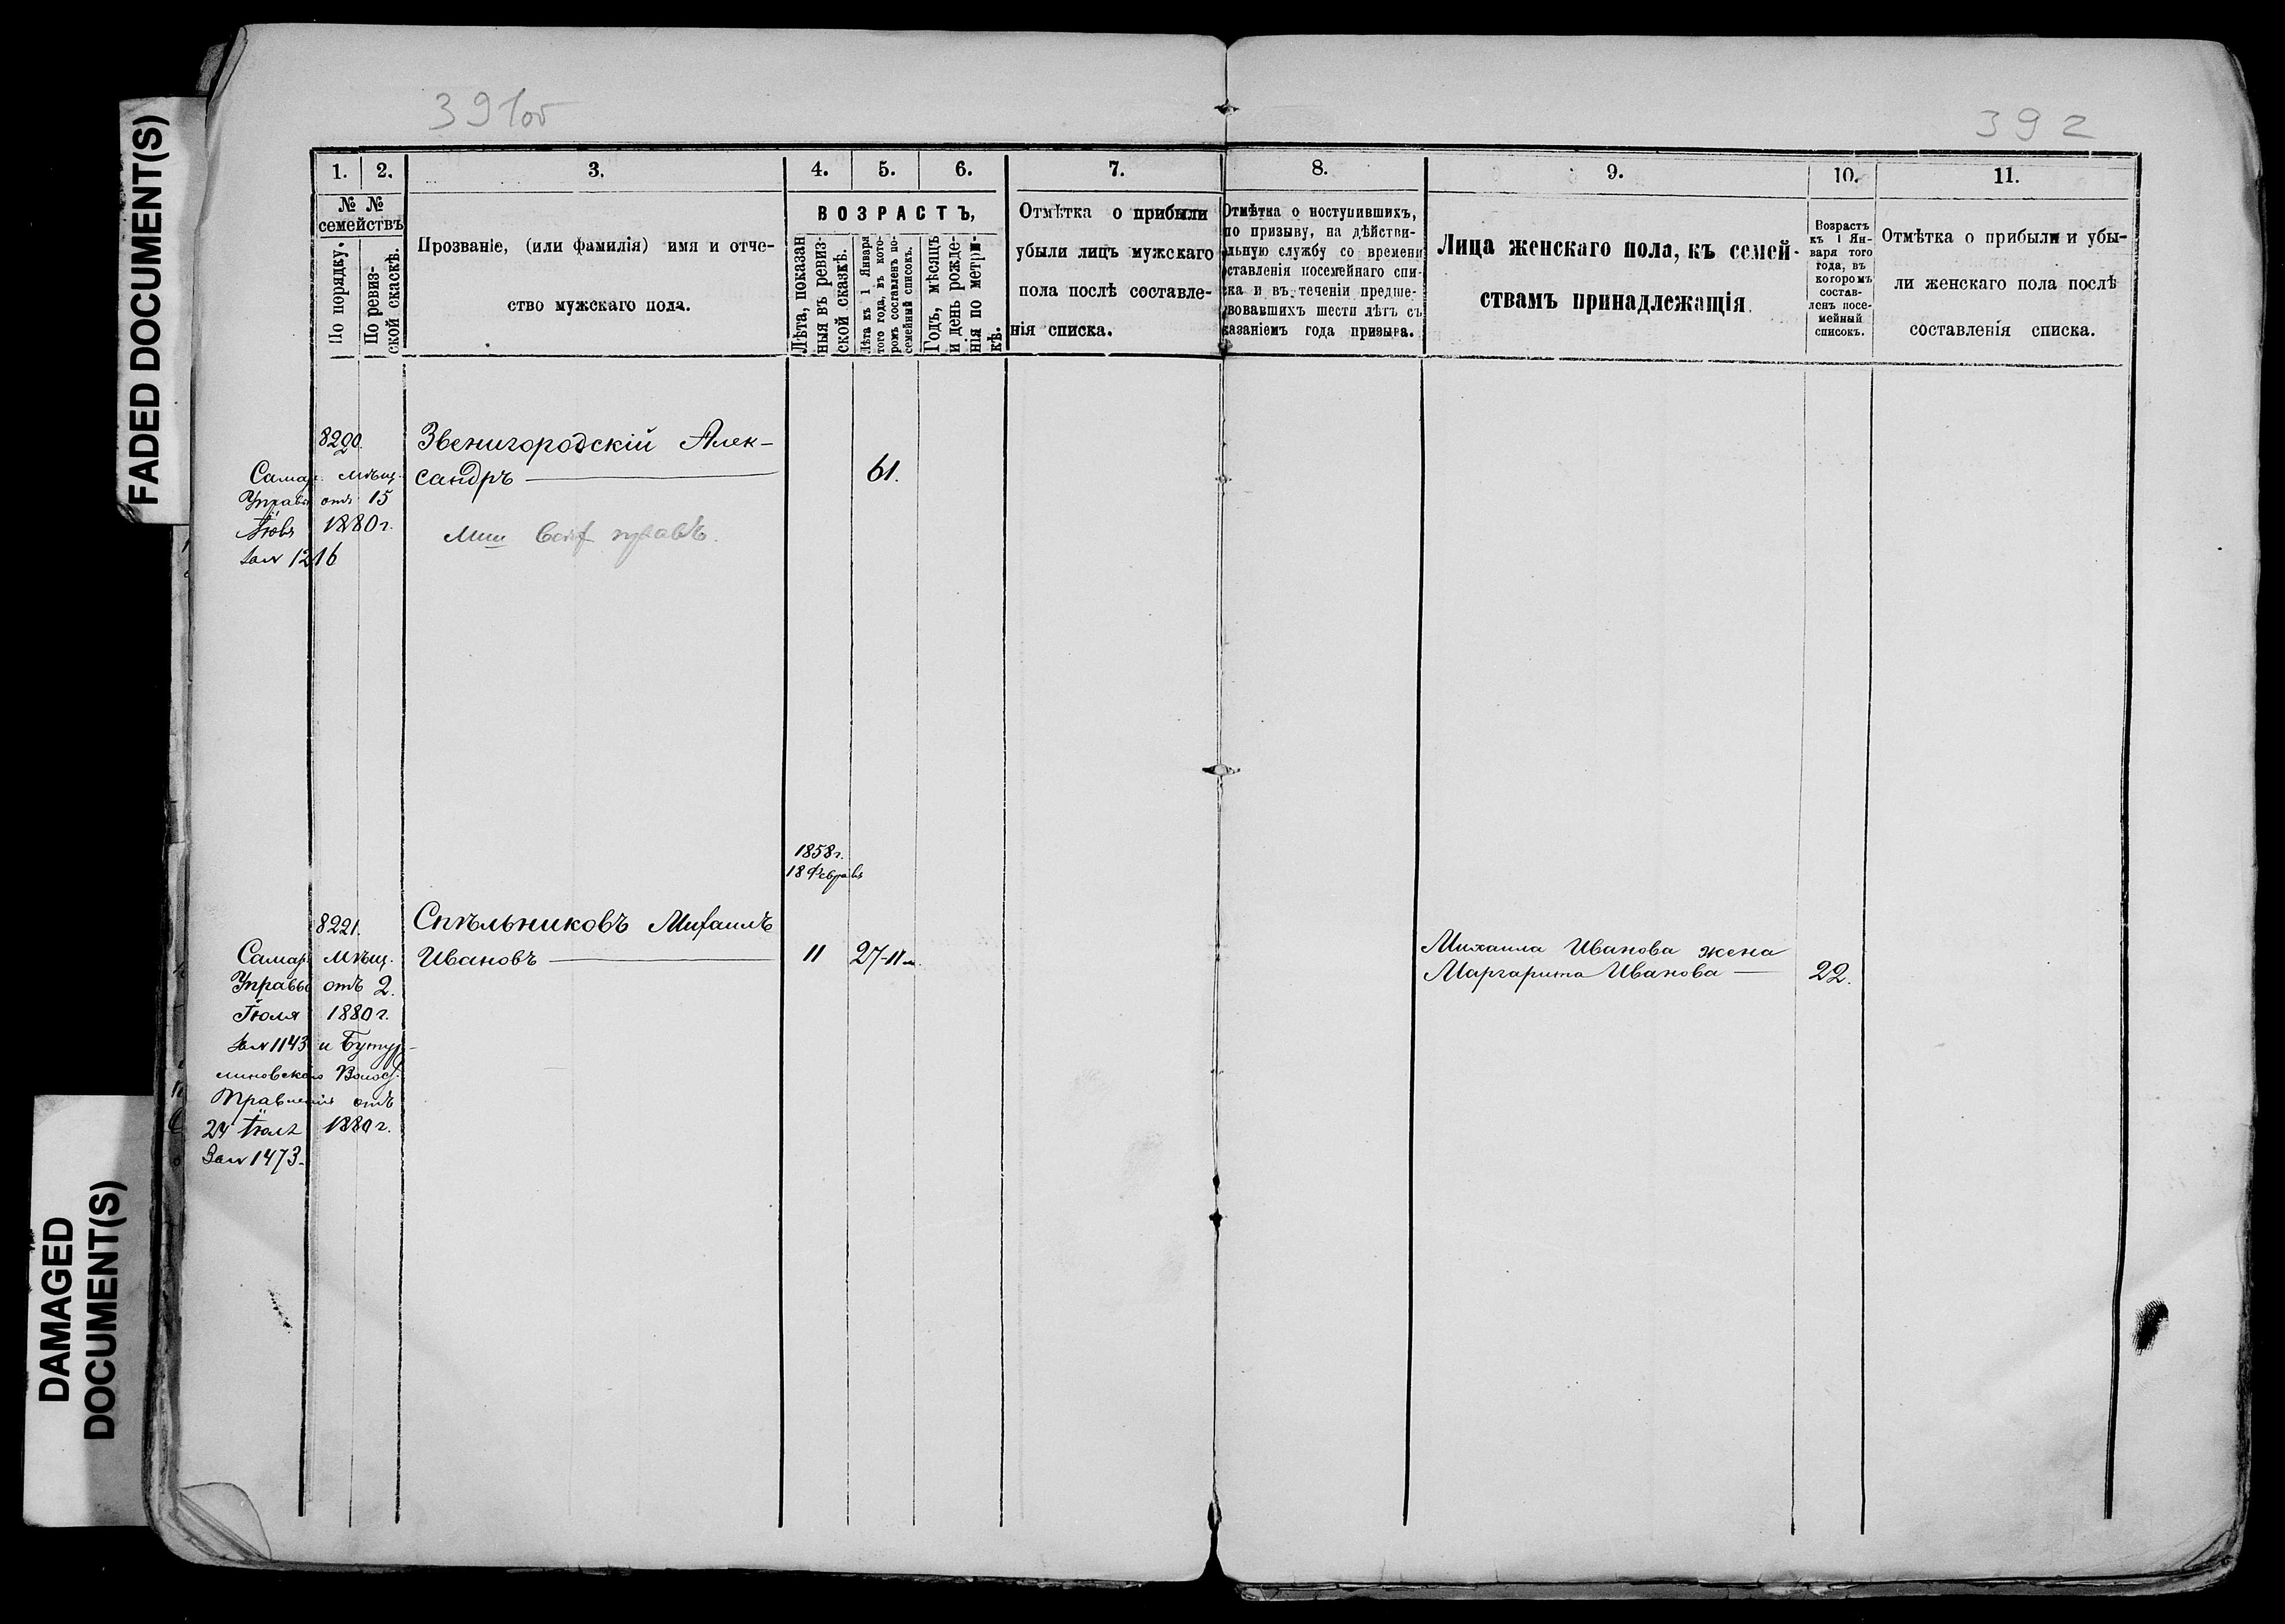 FADED DOCUMENT(S)
DAMAGED
DOCUMENT(S)
391об
392
1. 2. 3. 4. 5. 6. 7. 8. 9. 10. 11.
№ №
семействъ
По порядку.
По ревиз-
ской скаскѣ.
Прозваніе, (или фамилія) имя и отче-
ство мужскаго пола.
ВОЗРАСТЪ,
Лѣта, показан
ныя въ ревиз-
ской сказкѣ.
Лѣта къ 1 Января
того года, въ кото-
ромъ составленъ по-
семейный списокъ.
Годъ, мѣсяцъ
и день рожде-
нія по метри-
кѣ.
Отмѣтка о прибыли
убыли лицъ мужскаго
пола послѣ составле-
нія списка.
Отмѣтка о поступившихъ,
по призыву, на дѣйстви-
льную службу со времени
оставленія посемейнаго спи-
ска и въ теченіи предше-
твовавшихъ шести лѣтъ съ
казаніемъ года призыва.
Лица женскаго пола, къ семей-
ствамъ принадлежащія.
Возрастъ
къ 1 Ян-
варя того
года, въ
которомъ
состав-
ленъ посе-
мейный
списокъ.
Отмѣтка о прибыли и убы-
ли женскаго пола послѣ
составленія списка.
8290.
Звенигородскій Алек-
сандръ
61.
Самар. мѣщ.
Управы отъ 15
1880 г.
за № 1216
1858 г.
18 Февраля
8291.
Стѣльниковъ Михаилъ
Ивановъ
11
27-11 м.
Михаила Иванова жена
Маргарита Иванова
22.
Самар. Мѣщ.
Управы отъ 2.
Іюля 1880 г.
за № 1143 и Бутур-
линовскаго Волос.
Правленія отъ
24 Іюля 1880 г.
За № 1473.